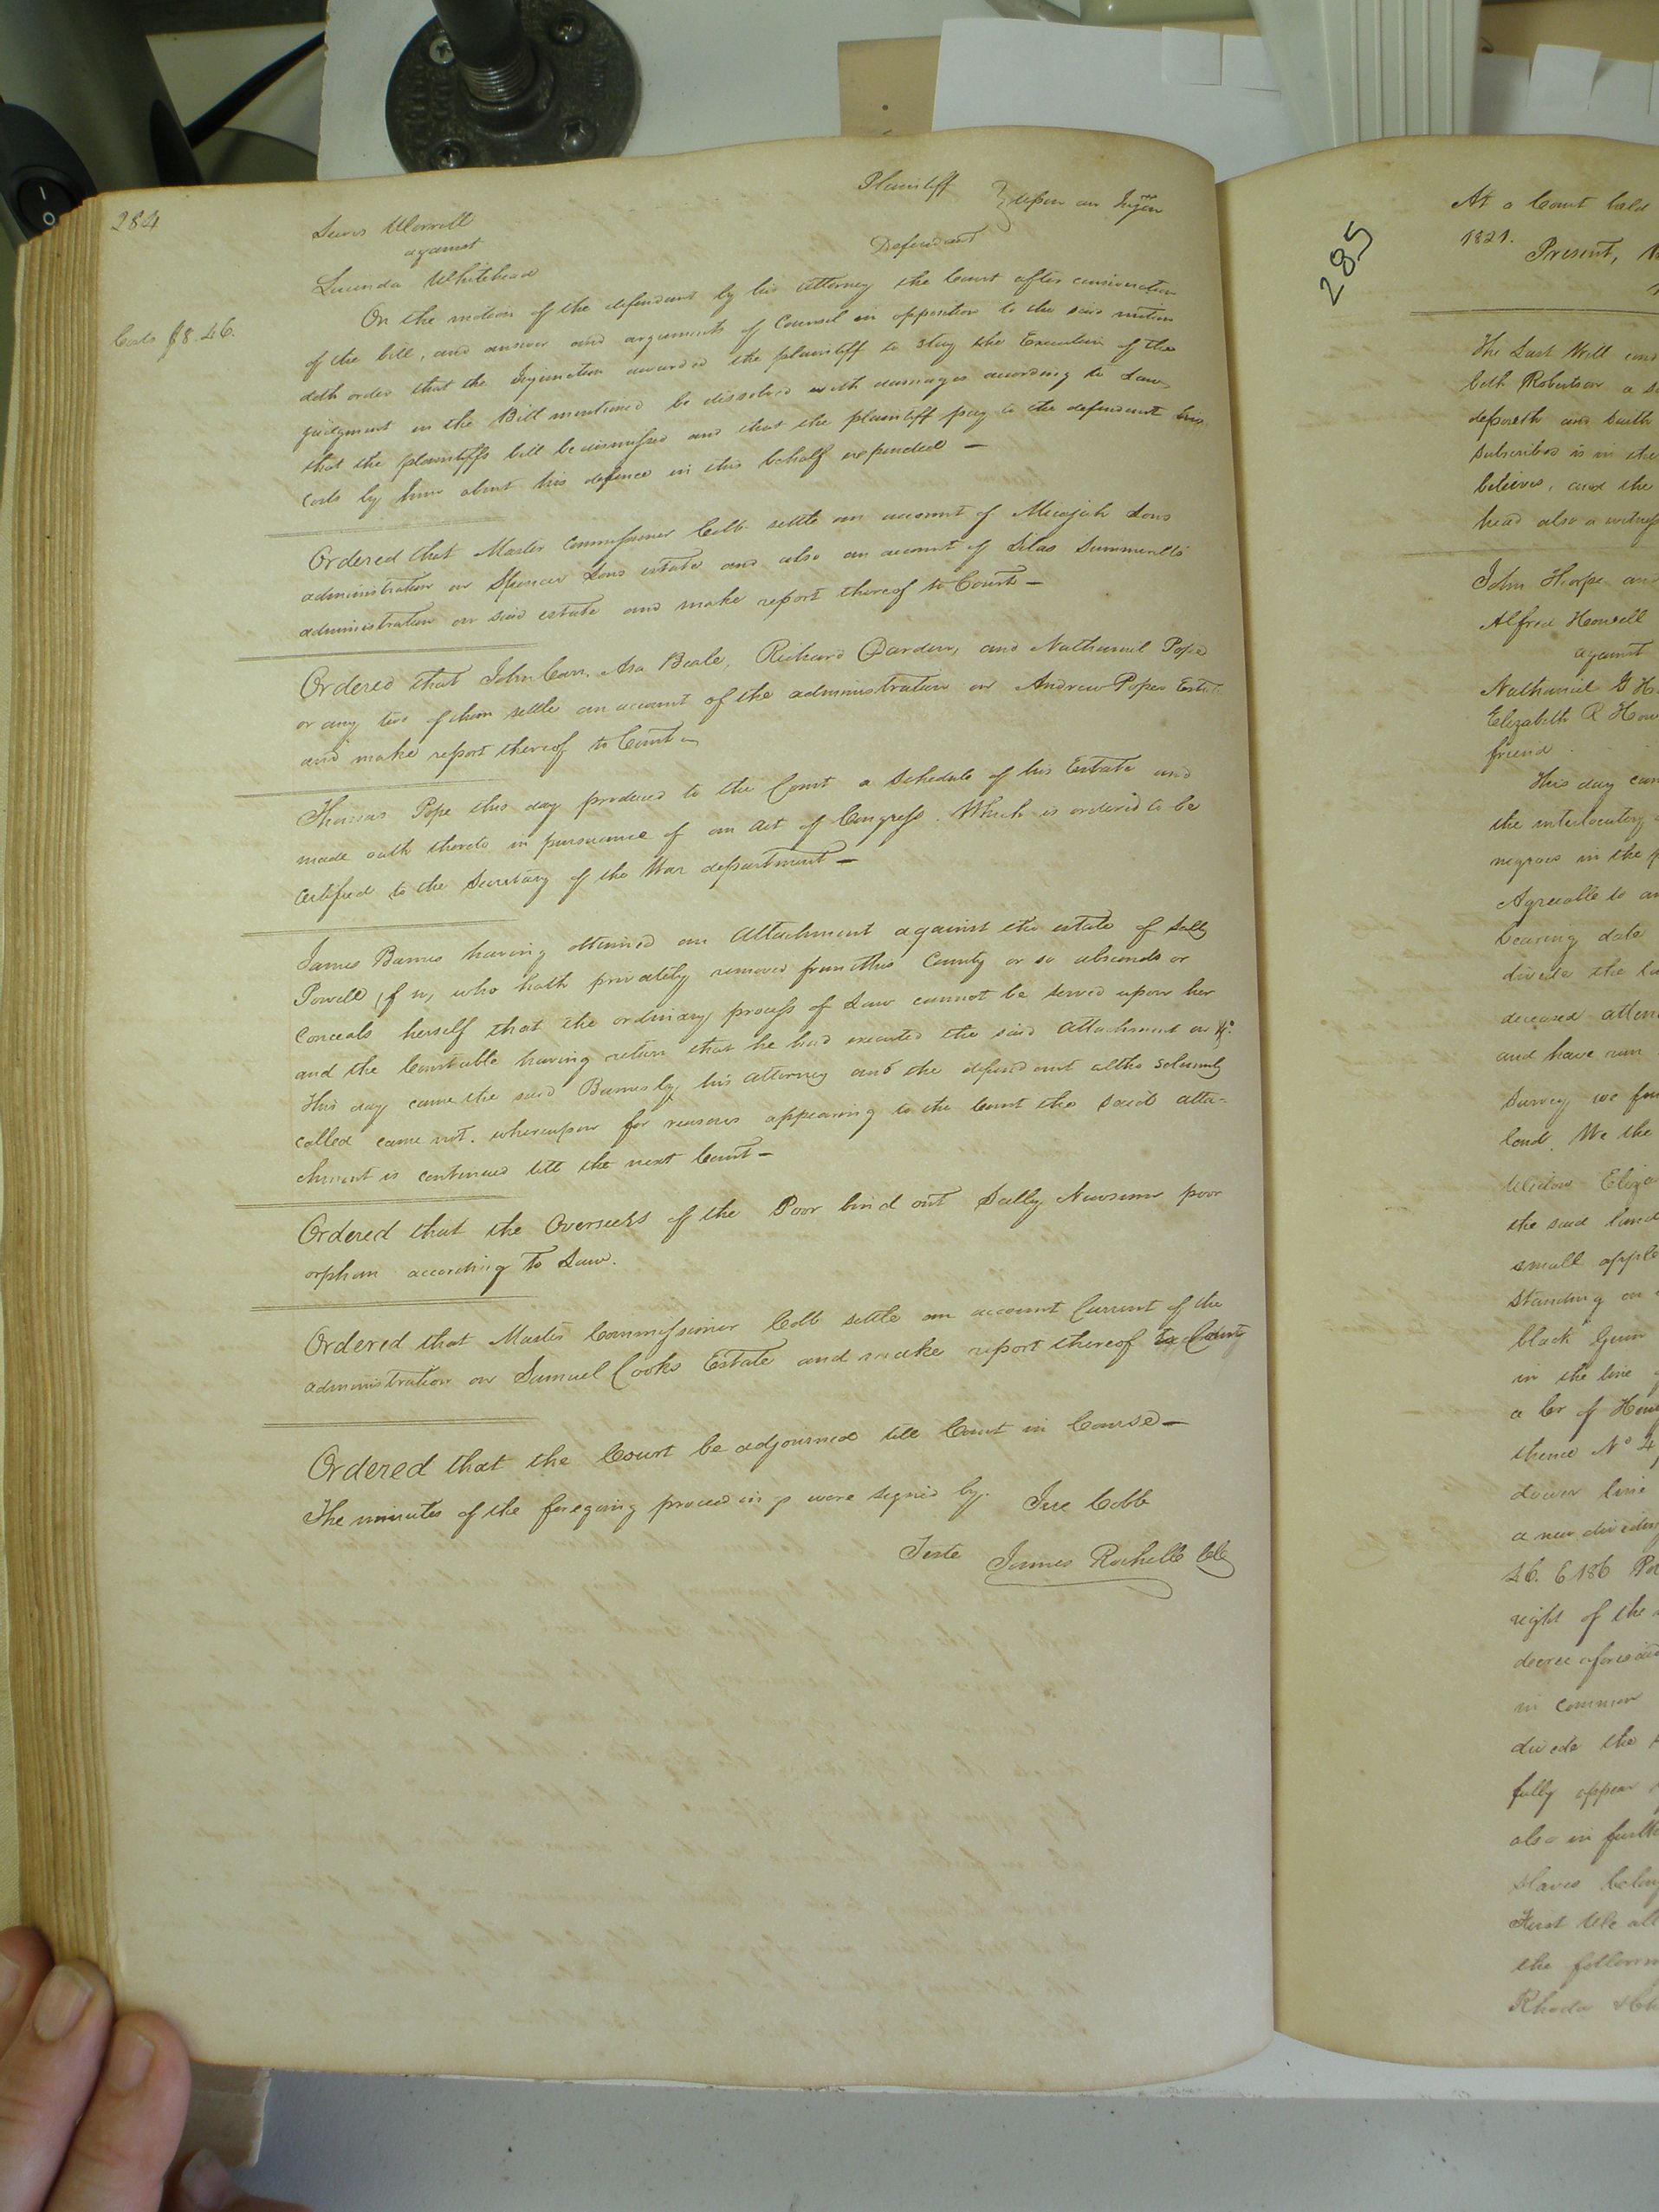 284
Lewis Worrell Plaintiff
against } upon an Injon
Lucinda Whitehead Defendant
Costs $8.46.
On the motion of the defendant by his attorney the Court after consideration
of the bill, and answer and arguments of Counsel in opposition to the said motion
doth order that the Injunction awarded the plaintiff to stay the Execution of the
judgment in the Bill mentioned be dissolved with damages according to Law,
that the plaintiffs bill be dismissed and that the plaintiff pay to the defendant his
costs by him about his defence in this behalf expended —
Ordered that Master Commissioner Cobb settle an account of Micajah
administration on Spencer estate and also an account of Silas Summerells
administration on said estate and make report thereof to Court —
Ordered that John Carr, Asa Beale, Richard Darden, and Nathaniel Pope
or any two of them settle an account of the administration on Andrew Popes Estate
and make report thereof to Court —
Thomas Pope this day produced to the Court a Schedule of his Estate and
made oath thereto in pursuance of an act of Congress. Which is ordered to be
certified to the Secretary of the War department —
James Barnes having obtained an Attachment against the estate of Sally
Powell (f n, who hath privately removed from this County or so absconds or
conceals herself that the ordinary process of Law cannot be served upon her
and the Constable having return that he had executed the said Attachment on &c
This day came the said Barnes by his attorney and the defendant altho solemnly
called came not. whereupon for reasons appearing to the Court the said atta-
chment is continued till the next Court —
Ordered that the Overseers of the Poor bind out Sally Newsome poor
orphan according to Law.
Ordered that Master Commissioner Cobb settle an account Current of the
administration on Samuel Cooks Estate and make report thereof to Court
Ordered that the Court be adjourned till Court in Course —
The minutes of the foregoing proceedings were signed by. Jere Cobb
Teste James Rochelle Clk
285
At a Court held
1821.
Present,
The Last Will and
beth Robertson a
deposeth and saith
subscribed is in the
believes, and the
head also a witness
John Thorpe and
Alfred Howell
against
Nathaniel G
Elizabeth R
friend
This day
the interlocutory
negroes in the
Agreeable to an
bearing date
divide the
deceased
and have run
survey we
land. We the
Widow
the said land
small apple
standing on
black Gum
in the line
a Cor of
thence No 4
dower line
a new dividing
46. E 186
right of the
decree aforesaid
in common
divide the
fully appear
also in
slaves
First We
the
Rhoda